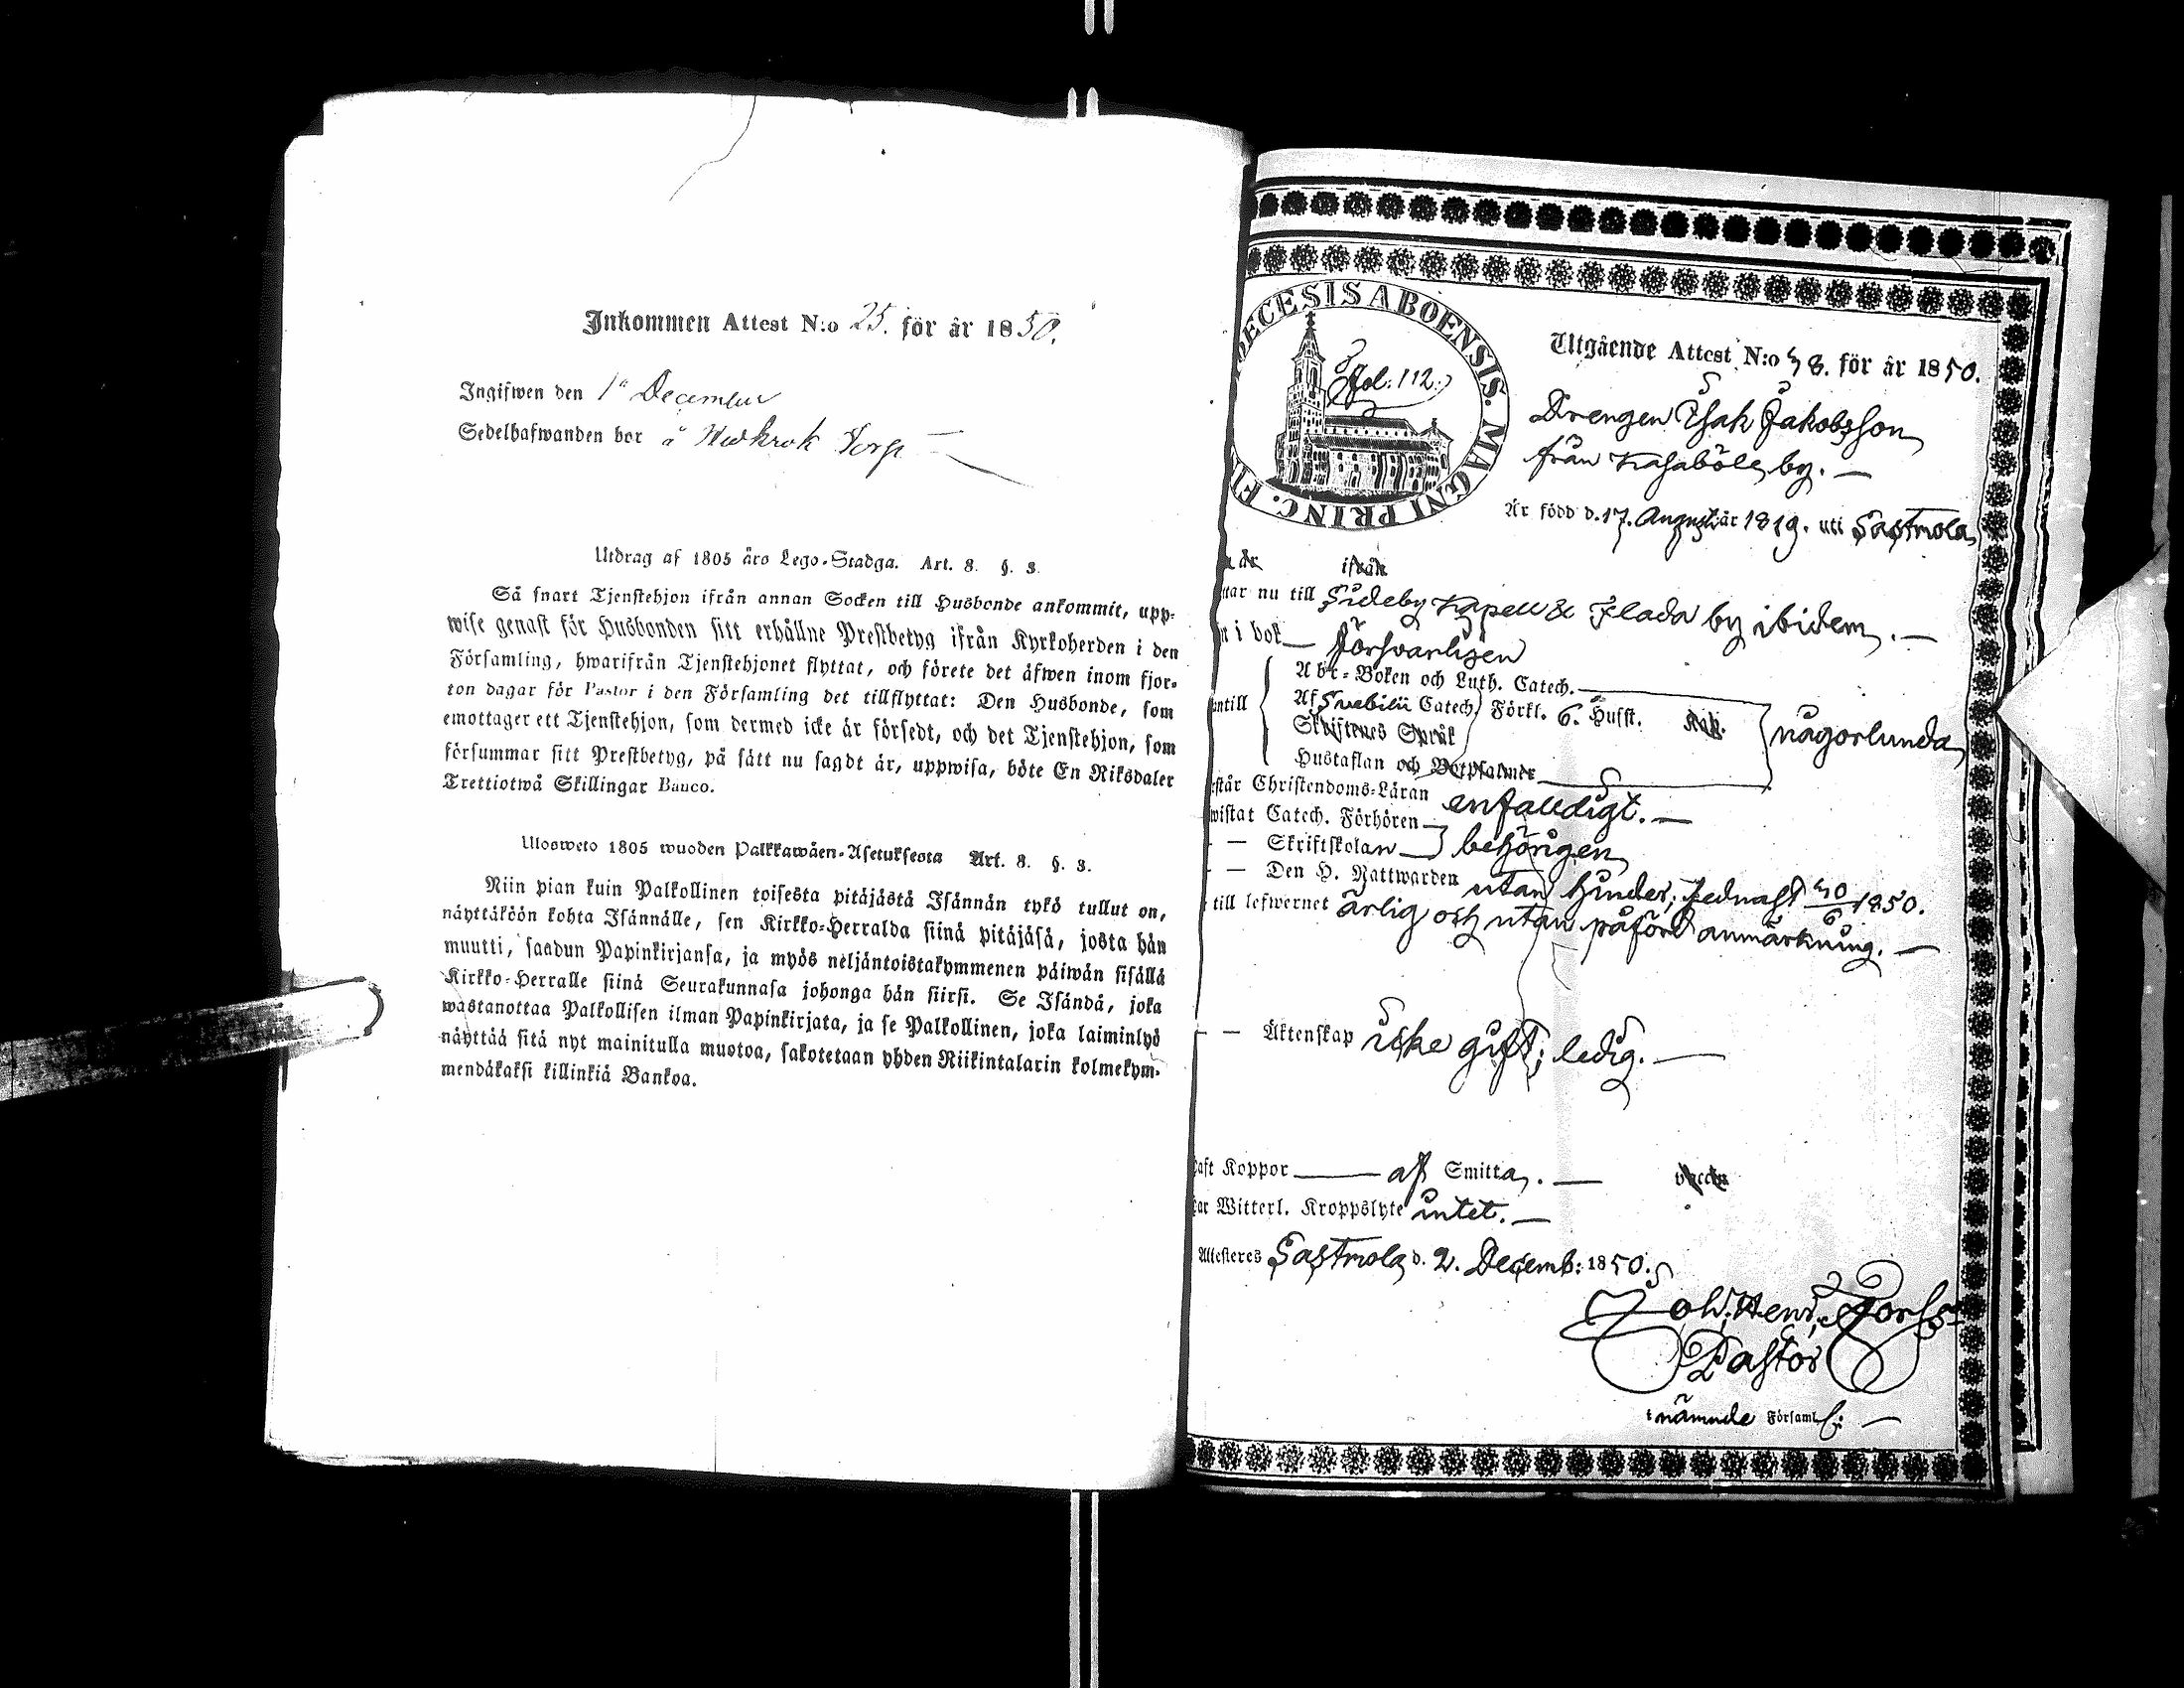 Inkommen Attest N:o 25. för år 1850.
Ingifwen den 1a December
Sedelhafwanden bor å Torp
Utdrag af 1805 års Lego-Stadga. Art. 8. §. 3.
Så snart Tjenstehjon ifrån annan Socken till Husbonde ankommit, upp-
wise genast för Husbonden sitt erhållne Prestbetyg ifrån Kyrkoherden i den
Församling, hwarifrån Tjenstehjonet flyttat, och förete det äfwen inom fjor-
ton dagar för Pastor i den Församling det tillflyttat: Den Husbonde, som
emottager ett Tjenstehjon, som dermed icke är försedt, och det Tjenstehjon, som
försummar sitt Prestbetyg, på sätt nu sagdt är, uppwisa, böte En Riksdaler
Trettiotwå Skillingar Banco.
Ulosweto 1805 wuoden Palkkawäen-Asetuksesta Art. 8. §. 3.
Niin pian kuin Palkollinen toisesta pitäjästä Isännän tykö tullut on,
näyttäköön kohta Isännälle, sen Kirkko-Herralda siinä pitäjäsä, josta hän
muutti, saadun Papinkirjansa, ja myös neljäntoistakymmenen päiwän sisällä
Kirkko-Herralle siinä Seurakunnasa johonga hän siirsi. Se Isändä, joka
wastanottaa Palkollisen ilman Papinkirjata, ja se Palkollinen, joka laiminlyö
näyttää sitä nyt mainitulla muotoa, sakotetaan yhden Riikintalarin kolmekym-
mendäkaksi killinkiä Bankoa.
ECESIS ABOENSIS. MAGNI PRINC. FI
Fol. 112.
Utgående Attest N:o 38. för år 1850.
Drengen Isak Jakobsson
från Kasaböle by. —
Är född d. 17. Augusti år 1819. uti Sastmola
är ifrån
tar nu till Sideby Kapell & Flada by ibidem. —
n i bok — försvarligen
Abc-Boken och Luth. Catech.
antill Af Svebilii Catech. Förkl. 6. Husst. någorlunda
Skriftenes Språk
Hustaflan och Botpsalmer
står Christendoms-Läran enfaldigt. —
wistat Catech. Förhören
— Skriftskolan behörigen
— Den H. Nattwarden utan hinder; sednast 30/6 1850.
till lefwernet ärlig och utan påförd anmärkning. —
— Äktenskap icke gift; ledig. —
haft Koppor — af Smitta. —
har Witterl. Kroppslyte intet. —
Attesteres Sastmola d. 2. Decemb: 1850.
Joh. Henr.
Pastor
i nämnde Församl: